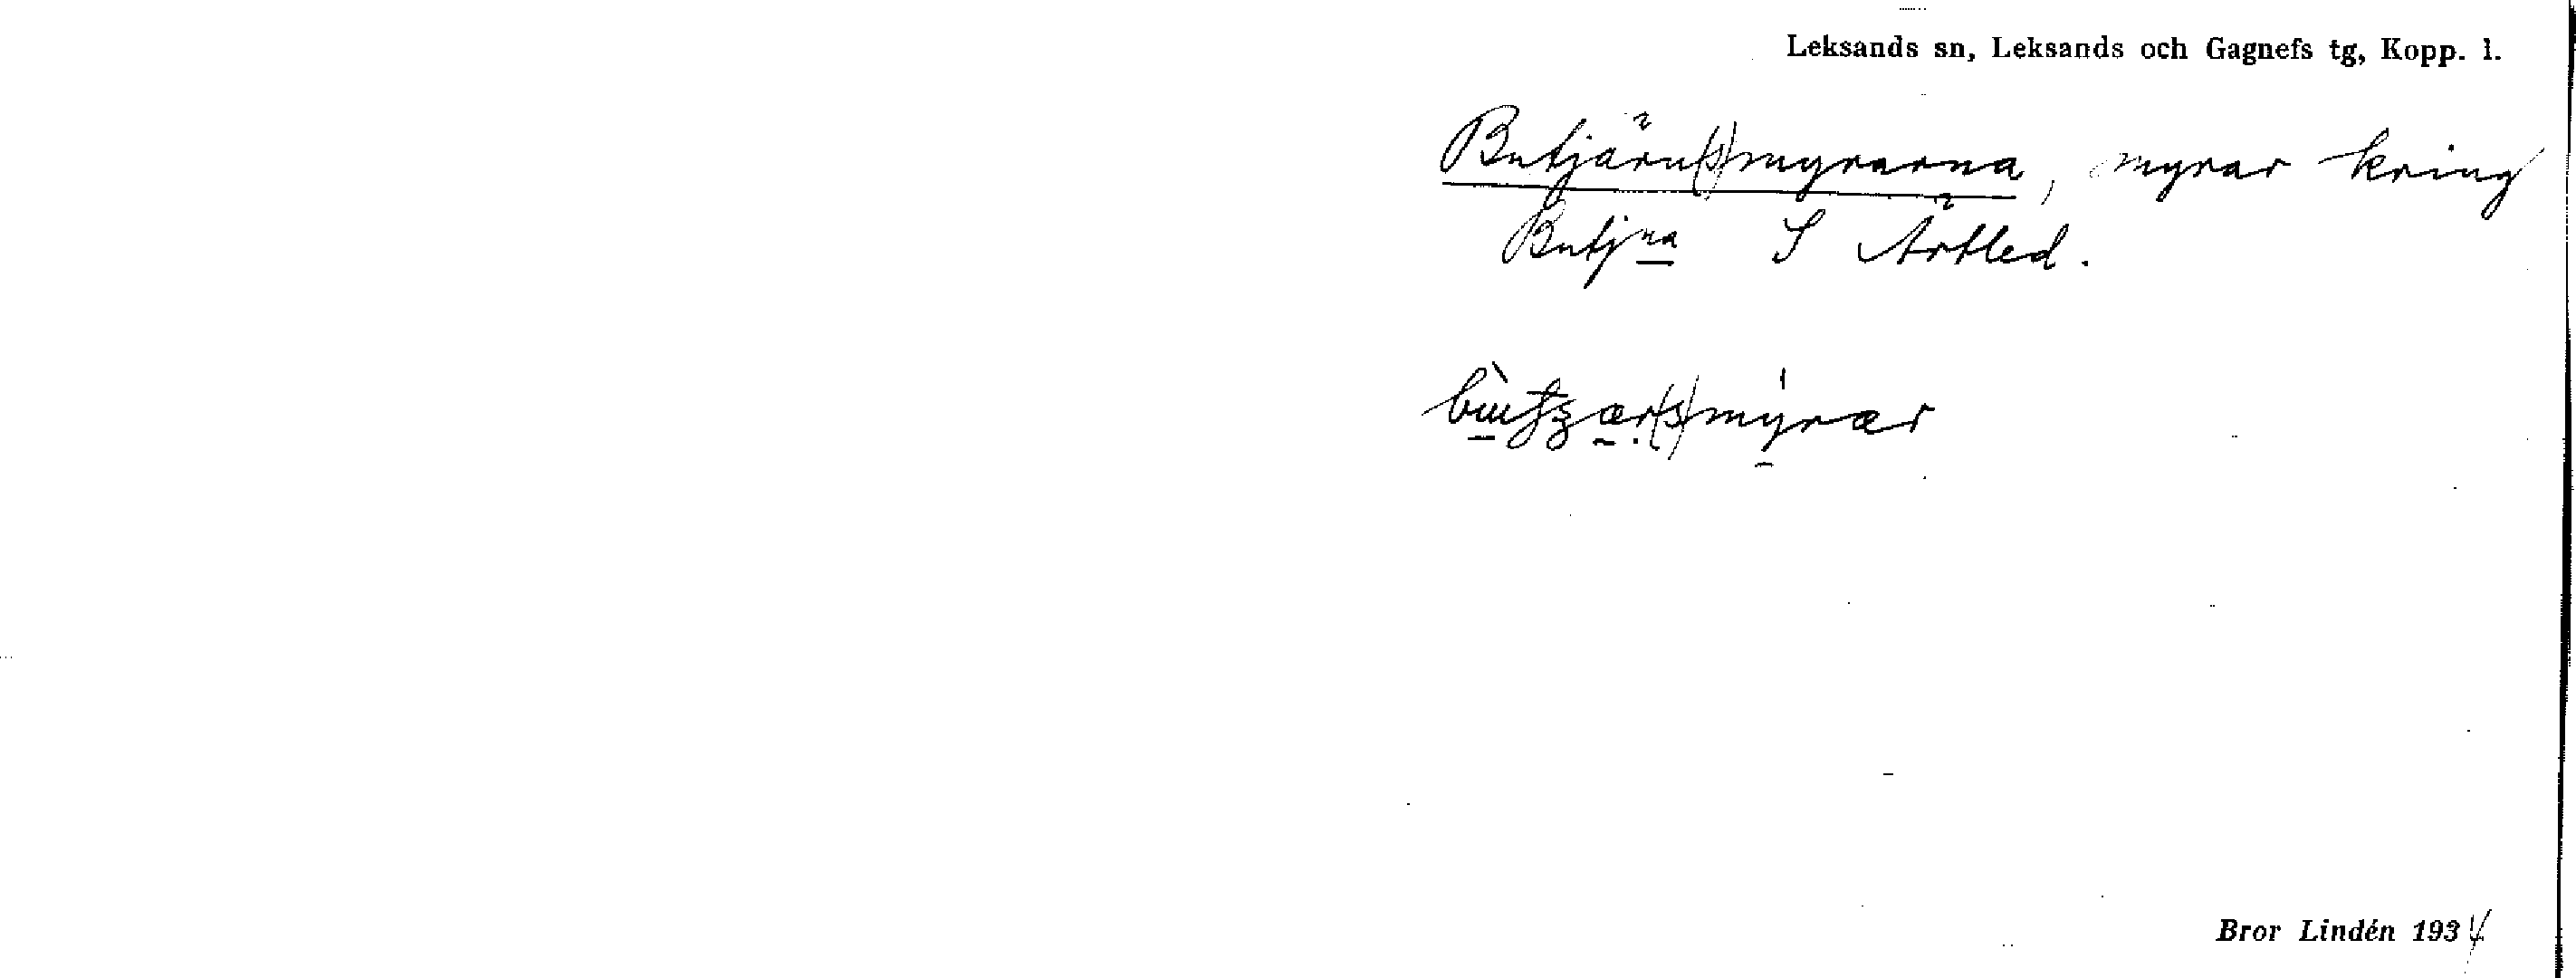 Leksands sn, Leksands och Gagnefs tg, Kopp. l.
Butjärn(s)myrarna, myrar kring
Butjna S Ärtled.
Bror Lindén 1934